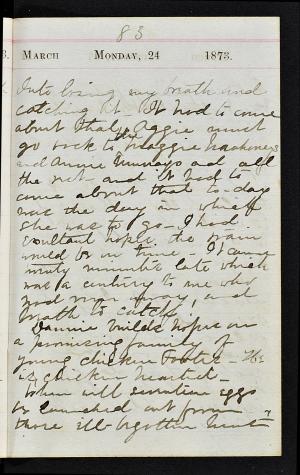 83
MARCH MONDAY, 24 1873.
Into losing my breath and
catching it - It had to come
about that Aggie must
go back to the Maggie
and Annie and all
the rest - and it had to
come about that to-day
was the day in which
she was to go - I had
exultant hopes the train
would be on time. It came
ninety minutes late which
was a century to me who
had away, and
breath to catch.
Dannie builds hopes on
a promising family of
young chicken - He
is chicken hearted -
When will seventeen eggs
be launched out from
those ill-begotten